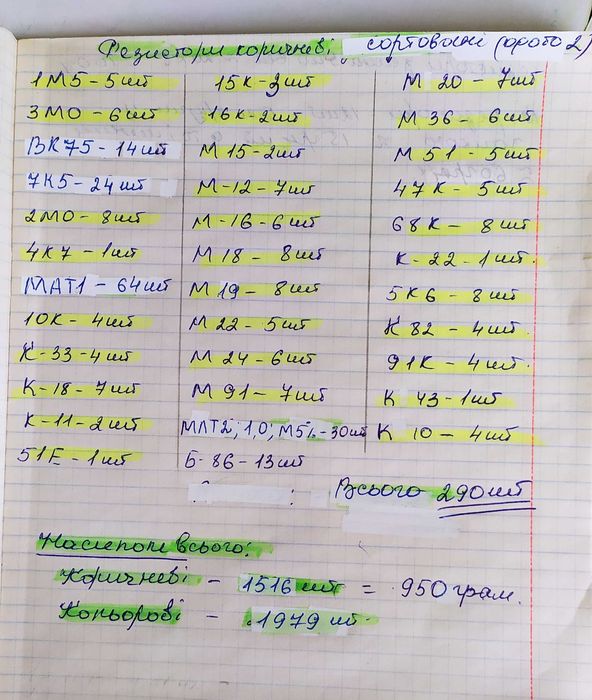 Резистори коричневі, сортовані (фото 2)
1М5 – 5шт
3М0 – 6шт
ВК75 – 14шт
7К5 – 24шт
2М0 – 8шт
4К7 – 1шт
МЛТ1 – 64шт
10К – 4шт
К-33 – 4шт
К-18 – 7шт
К-11 – 2шт
51Е – 1шт
15К – 2шт
16К – 2шт
М15 – 2шт
М-12 – 7шт
М-16 – 6шт
М18 – 8шт
М19 – 8шт
М22 – 5шт
М24 – 6шт
М91 – 7шт
МЛТ2; 1,0; М5%. – 30шт
Б-86 – 13шт
М 20 – 7шт
М36 – 6шт
М51 – 5шт
47К – 5шт
68К – 8шт
К-22 – 1шт.
5К6 – 8шт
К 82 – 4шт.
91К – 4шт.
К 43 – 1шт
К 10 – 4шт
Всього 290шт
Насипом всього:
Коричневі – 1516 шт = 950 грам.
Кольорові – 1979 шт.